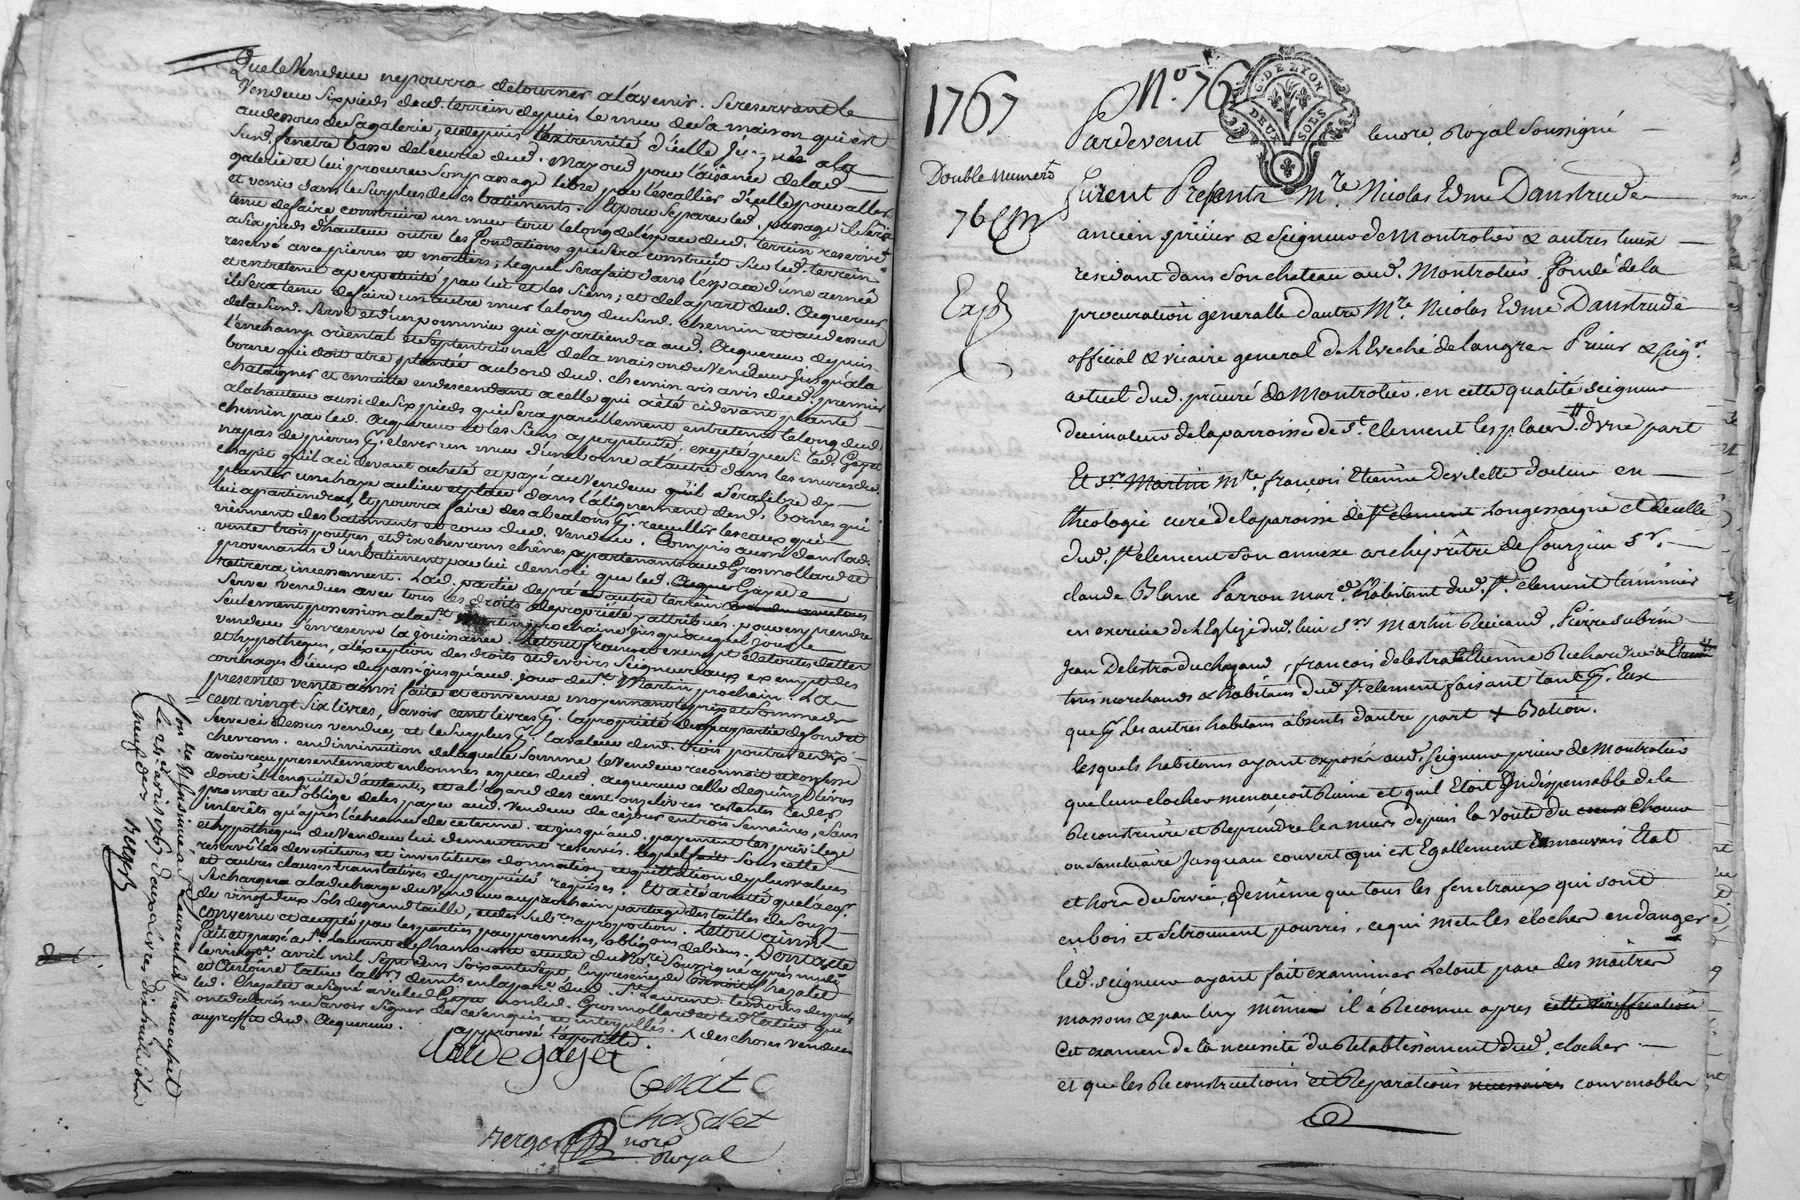 Que le Vendeur ne pourra detourner a l'avenir. Se reservant le
Vendeur six pieds dud. terrein depuis le mur de sa maison qui est
au dessous de sa galerie, et depuis l'extremité d'icelle jusques a la
Sud. fenetre basse de l'ecurie dud. Mayoud pour l'aisance de lad.
galerie et lui procurer son passage libre par l'escallier d'icelle pour aller
et venir dans le surplus de ses batiments. Et pour separer led. passage il sera
tenu de faire construire un mur tout le long de l'espace dud. terrein reservé
a six pieds d'hauteur outre les fondations qui sera construit sur led. terrein
reservé avec pierres et mortiers; lequel sera fait dans l'espace d'une année
et entretenu a perpetuité par lui et les siens; et de la part dud. Acquereur
il sera tenu de faire un autre mur le long du sud. chemin et au dessus
de la sud. serve et d'un pommier qui apartiendra aud. Acquereur depuis
l'enchamp oriental et septentrional de la maison du Vendeur jusqu'à la
borne qui doit etre plantée au bord dud. chemin vis a vis dud. premier
chataigner et ensuitte en descendant a celle qui a été ci devant plantée
a la hauteur aussi de six pieds qui sera pareillement entretenu le long dud.
chemin par led. Acquereur et les siens a perpetuité. excepté que si led. Gayet
n'a pas de pierres pr. elever un mur d'une borne a l'autre dans les mures du
chapit qu'il a ci devant acheté et payé au Vendeur qu'il sera libre d'y
planter une haye au lieu et place dans l'alignement desd. bornes qui
lui apartiendra, et pourra faire des abealons pr. recueillir les eaux qui
viennent des batiments et cour dud. Vendeur. Compris aussi dans lad.
vente trois poutres, et dix chevrons chênes apartenants aud. Grosmollard et
provenants d'un batiment par lui demoli que led. Acquer Gayet
retirera incessament. Lad. partie de pré et autre terrein
serve vendues avec tous les droits de propriété y attribués. pour en prendre
seulement possession a la St. Martin prochaine jusqu'auquel jour le
vendeur s'en reserve la jouissance. Le tout franc et exempt de toutes dettes
et hypotheques, a l'exception des droits et devoirs seigneuriaux exempt des
arrerages d'iceux du passé jusqu'aud. jour de St. Martin prochain. La
presente vente ainsi faite et convenue moyennant le prix et somme de
cent vingt six livres, savoir cent livres pr. la propriété desd. partie de fond et
serve ci dessus vendues, et le surplus pr. la valeur desd. trois poutres et dix
chevrons. en diminution de laquelle somme le Vendeur reconnoit et confesse
avoir reçu presentement en bonnes especes dud. acquereur celle de quinze livres
dont il l'en quitte d'autant, et a l'égard des cent onze livres restantes led. Gr
promet et s'oblige de les payer aud. Vendeur de ce jour en trois semaines, sans
interêts qu'après l'echeance de ce terme. et jusqu'aud. payement les privilege
et hypotheques du Vendeur lui demeurent reservés. Lequel fait sous cette
reserve les devestitures et investitures donnation et quittation de plus values
et autres clauses translatives de propriété requises. Et a été arretté que l'acqr.
se chargera a la decharge du Vendeur au prochain partage des tailles de Souz
de vingt deux sols de grand taille, et des subres. a proportion. Le tout ainsi
convenu et accepté par les parties par promesses, obligons. de biens. Dont acte
Fait et passé a St. Laurent de Chamousset etude du Nore. soussigné après midi
le vingt avril mil sept cens soixante sept En presence de Benoit Chazalet
et Antoine tatur labrs. demts. en la parce. dud. St. Laurent temoins desquels
led. Chazalet a signé avec led Gayet non led. Grosmollard et led. tatur qui
ont declarés ne savoir signer de ce enquis et interpellés. ⁁ des choses vendues
au profit dud. Acquereur.
approuvé l'apostille.
Claude gayet
Benoit
Chasalet
Berger nore
Royal
Con.lé et Insinué a St Laurent de Chamousset
le 25 avril 1767
neuf den
Berger
1767
No. 76
G. DE LYON
DEUX SOLS
Double numero
76
Exp
Pardevant le nore. Royal soussigné
Furent Presents Mre. Nicolas Edme Danstrude
ancien prieur & seigneur de Montrotier & autres lieux
residant dans son chateau aud. Montrotier, fondé de la
procuration generalle d'autre Mre. Nicolas Edme Danstrude
official & vicaire general de l'Eveché de langres Prieur & seigr.
actuel dud. prieuré de Montrotier. en cette qualité seigneur
decimateur de la parroisse de St. Clement les places d'une part
Et sr. Martin Mre. françois Etienne Devilette docteur en
theologie curé de la paroisse de St clement Longessaigne et de celle
dud. St. clement son annexe archiprêtre de Courzieu sr.
claude Blanc Parron mard. habitant dud. St. clement luminier
en exercice de l'Eglize dud. lieu srs Martin Reicand, Pierre subrin
Jean Delestra du chazaud, françois delestra Etienne Richard
tous marchands & habitans dud. St. clement faisant tant pr. Eux
que pr. les autres habitans absents d'autre part
lesquels habitans ayant exposés aud. seigneur prieur de Montrotier
que leur clocher menaçoit Ruine et qu'il Etoit Indispensable de le
Reconstruire et Reprendre les murs depuis la voûte du cœur Choeur
ou sanctuaire Jusqu'au couvert qui est Egallement En mauvais Etat
et hors de service, de même que tous les fenetraux qui sont
en bois et se trouvent pourris, ce qui met les clocher en danger
led. seigneur ayant fait examiner le tout par des maîtres
massons & par luy même il a Reconnu apres cette verification
cet examen de la necessité du Retablissement dud. clocher
et que les Reconstructions et Reparations necessaires convenables